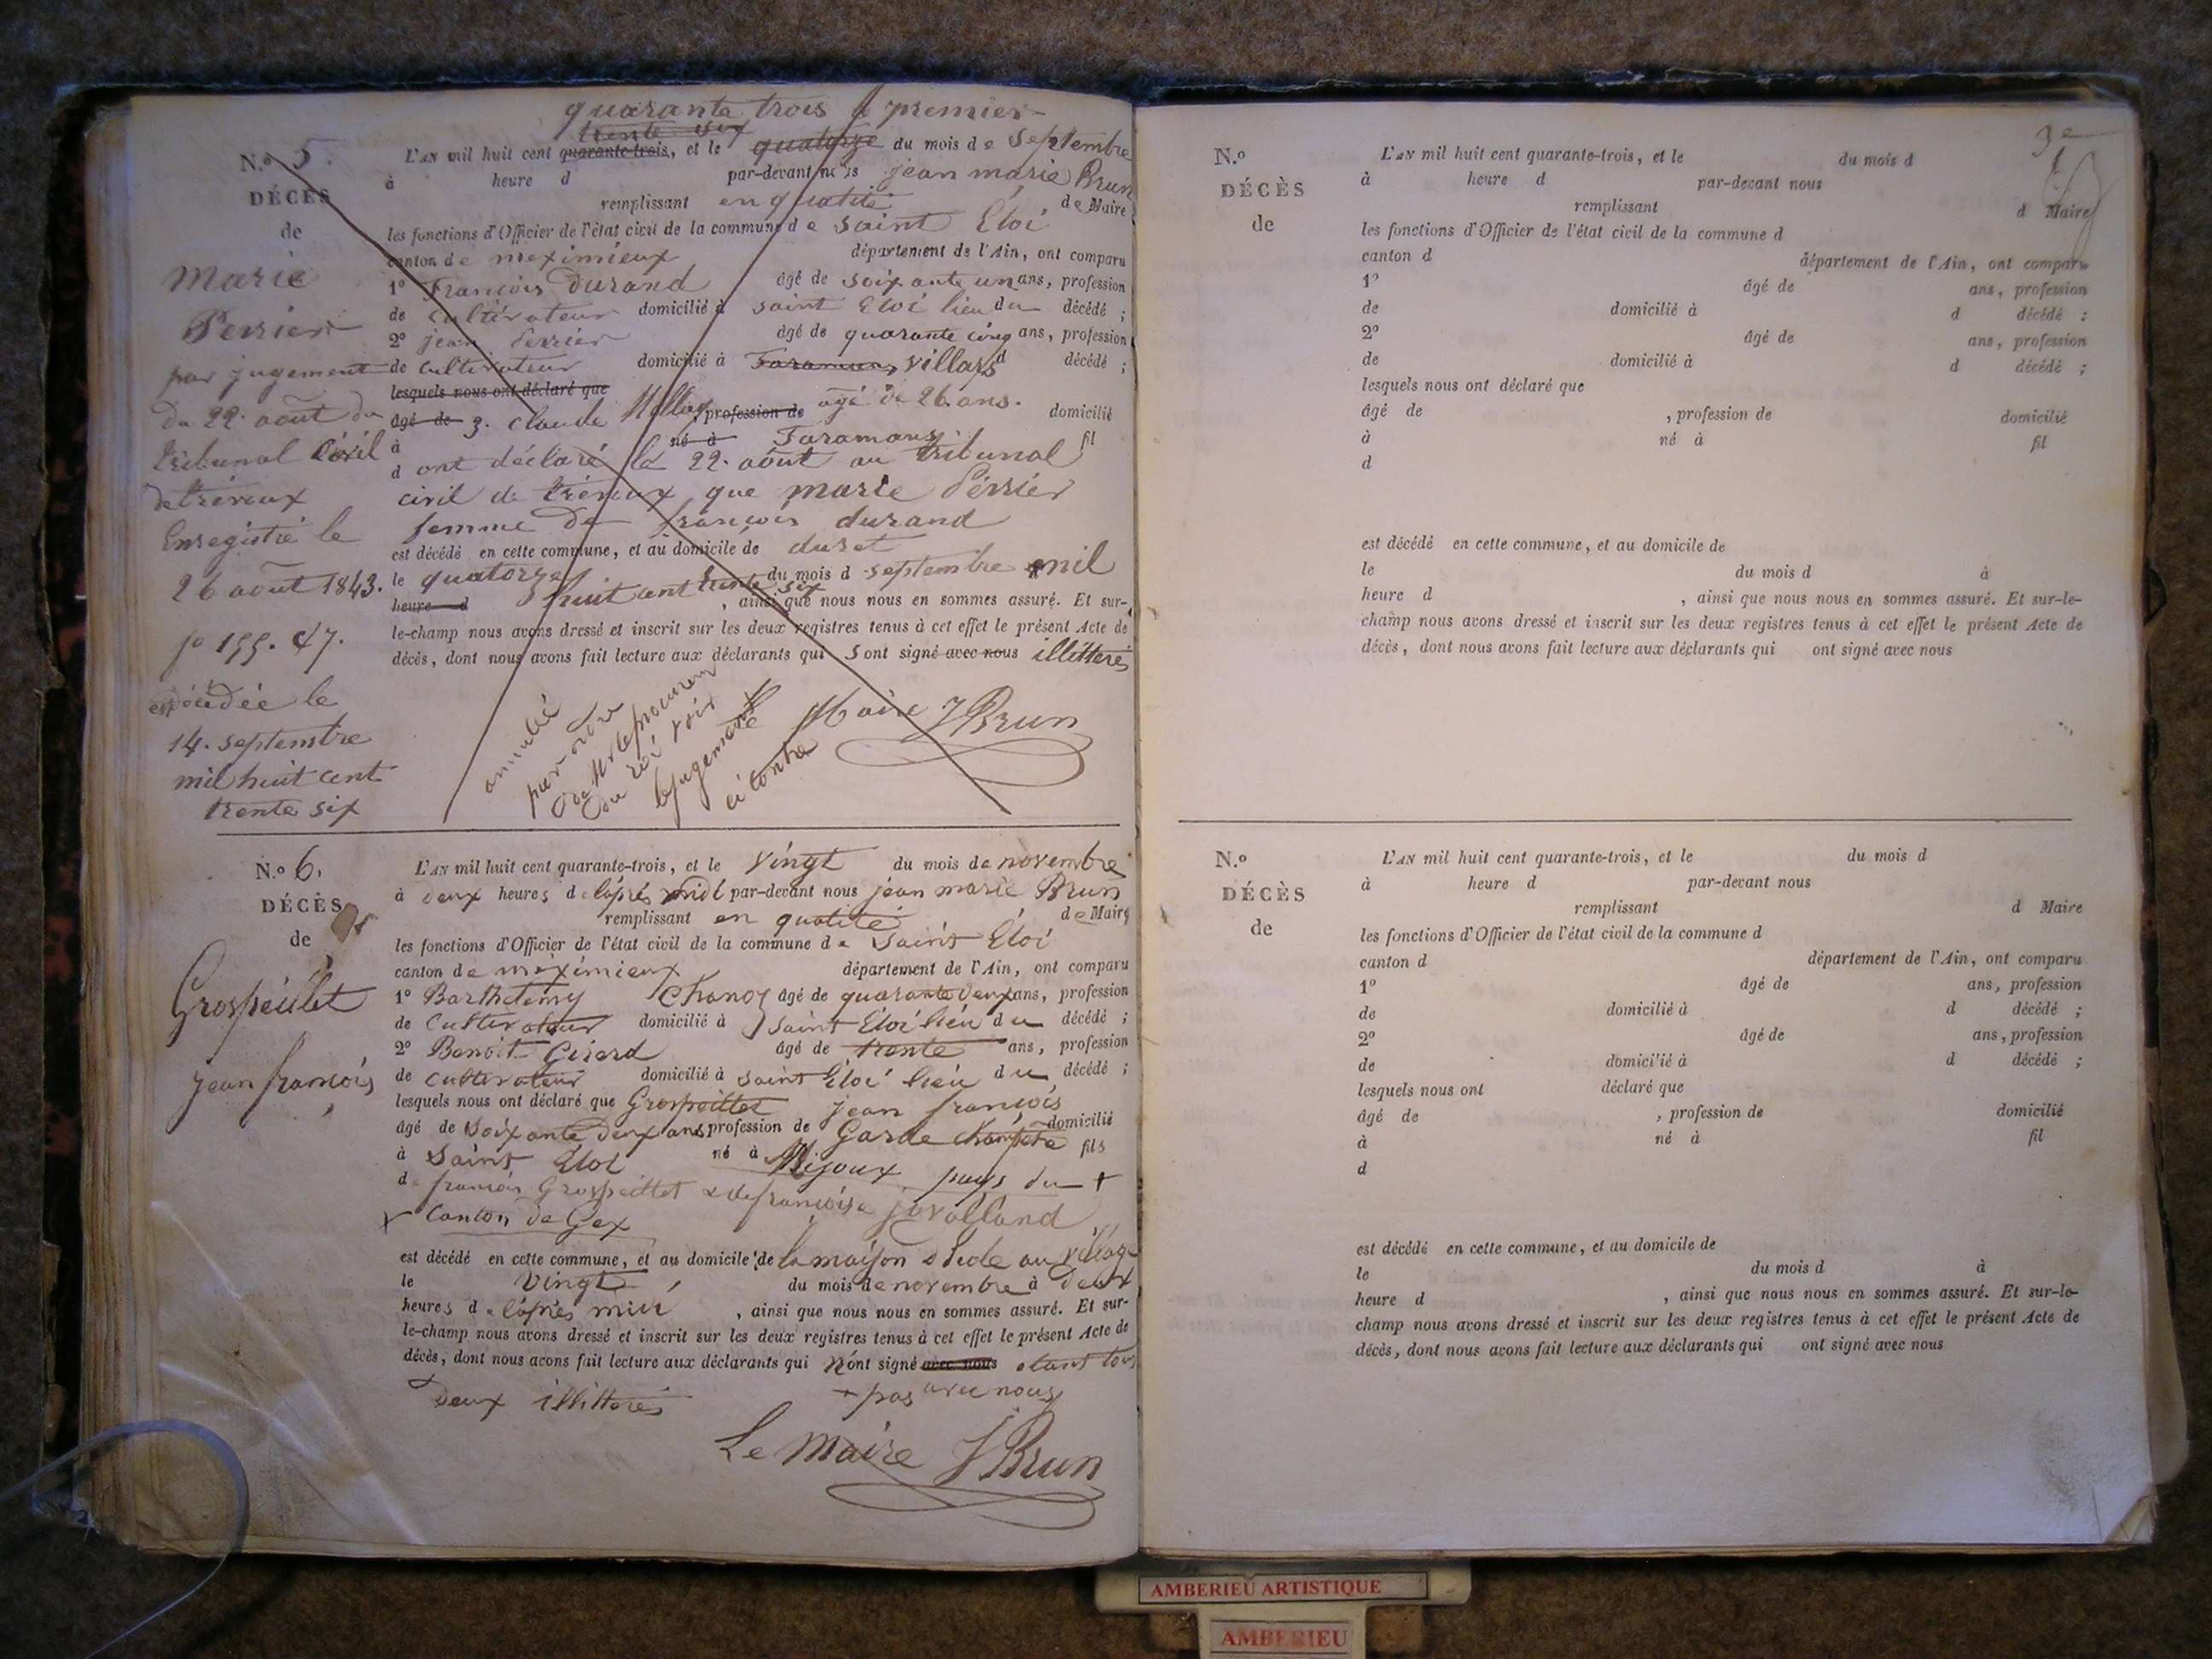 quarante trois le premier
trente six
N.o 5. L'AN mil huit cent quarante-trois, et le quatorze du mois de septembre
à heure d par-devant nous jean marie Brun
DÉCÈS remplissant en qualité de Maire
de les fonctions d'Officier de l'état civil de la commune de saint Eloi
canton de meximieux département de l'Ain, ont comparu
marie 1° François Durand âgé de soixante un ans, profession
de cultivateur domicilié à saint Eloi lieu du décédé ;
Perrier 2° jean Perrier âgé de quarante cinq ans, profession
par jugement de cultivateur domicilié à Faramans villars d décédé ;
lesquels nous ont déclaré que
du 22. août du âgé de 3. claude , profession de agé de 26 ans. domicilié
tribunal Civil à né à Faramans fil
d ont déclaré le 22. août au tribunal
de trévoux civil de trévoux que marie Périer
Enregistré le femme de françois durand
est décédé en cette commune, et au domicile de
26 août 1843. le quatorze du mois d septembre mil
heure d huit cent trente six , ainsi que nous nous en sommes assuré. Et sur-
le-champ nous avons dressé et inscrit sur les deux registres tenus à cet effet le présent Acte de
décès, dont nous avons fait lecture aux déclarants qui sont signé avec nous illitterés
décédée le
14. septembre
mil huit cent
trente six
annulé
par ordre
de Mr le procureur
du roi voir
le jugement
ci contre
Maire J Brun
N.o 6. L'AN mil huit cent quarante-trois, et le vingt du mois de novembre
à deux heures de l'après midi par-devant nous jean marie Brun
DÉCÈS remplissant en qualité de Maire
de les fonctions d'Officier de l'état civil de la commune de Saint Eloi
canton de meximieux département de l'Ain, ont comparu
Grospeillet 1° Barthelemy Chanoz âgé de quarante deux ans, profession
de Cultivateur domicilié à saint Eloi lieu du décédé ;
2° Benoit Girard âgé de trente ans, profession
jean françois de cultivateur domicilié à saint Eloi lieu du décédé ;
lesquels nous ont déclaré que Grospeillet jean françois
âgé de soixante deux ans profession de Garde Champêtre domicilié
à Saint Eloi né à Mijoux pays du + fils
de françois Grospeillet & de françoise javolland
+ Canton de Gex
est décédé en cette commune, et au domicile de la maison au village
le vingt du mois de novembre à deux
heures de l'après midi , ainsi que nous nous en sommes assuré. Et sur-
le-champ nous avons dressé et inscrit sur les deux registres tenus à cet effet le présent Acte de
décès, dont nous avons fait lecture aux déclarants qui n'ont signé avec nous etant tous
deux illitterés + pas avec nous
Le Maire J Brun
3e
N.o L'AN mil huit cent quarante-trois, et le du mois d
à heure d par-devant nous
DÉCÈS remplissant d Maire
de les fonctions d'Officier de l'état civil de la commune d
canton d département de l'Ain, ont comparu
1° âgé de ans, profession
de domicilié à d décédé ;
2° âgé de ans, profession
de domicilié à d décédé ;
lesquels nous ont déclaré que
âgé de , profession de domicilié
à né à fil
d
est décédé en cette commune, et au domicile de
le du mois d à
heure d , ainsi que nous nous en sommes assuré. Et sur-le-
champ nous avons dressé et inscrit sur les deux registres tenus à cet effet le présent Acte de
décès, dont nous avons fait lecture aux déclarants qui ont signé avec nous
N.o L'AN mil huit cent quarante-trois, et le du mois d
à heure d par-devant nous
DÉCÈS remplissant d Maire
de les fonctions d'Officier de l'état civil de la commune d
canton d département de l'Ain, ont comparu
1° âgé de ans, profession
de domicilié à d décédé ;
2° âgé de ans, profession
de domicilié à d décédé ;
lesquels nous ont déclaré que
âgé de , profession de domicilié
à né à fil
d
est décédé en cette commune, et au domicile de
le du mois d à
heure d , ainsi que nous nous en sommes assuré. Et sur-le-
champ nous avons dressé et inscrit sur les deux registres tenus à cet effet le présent Acte de
décès, dont nous avons fait lecture aux déclarants qui ont signé avec nous
AMBERIEU ARTISTIQUE
AMBERIEU